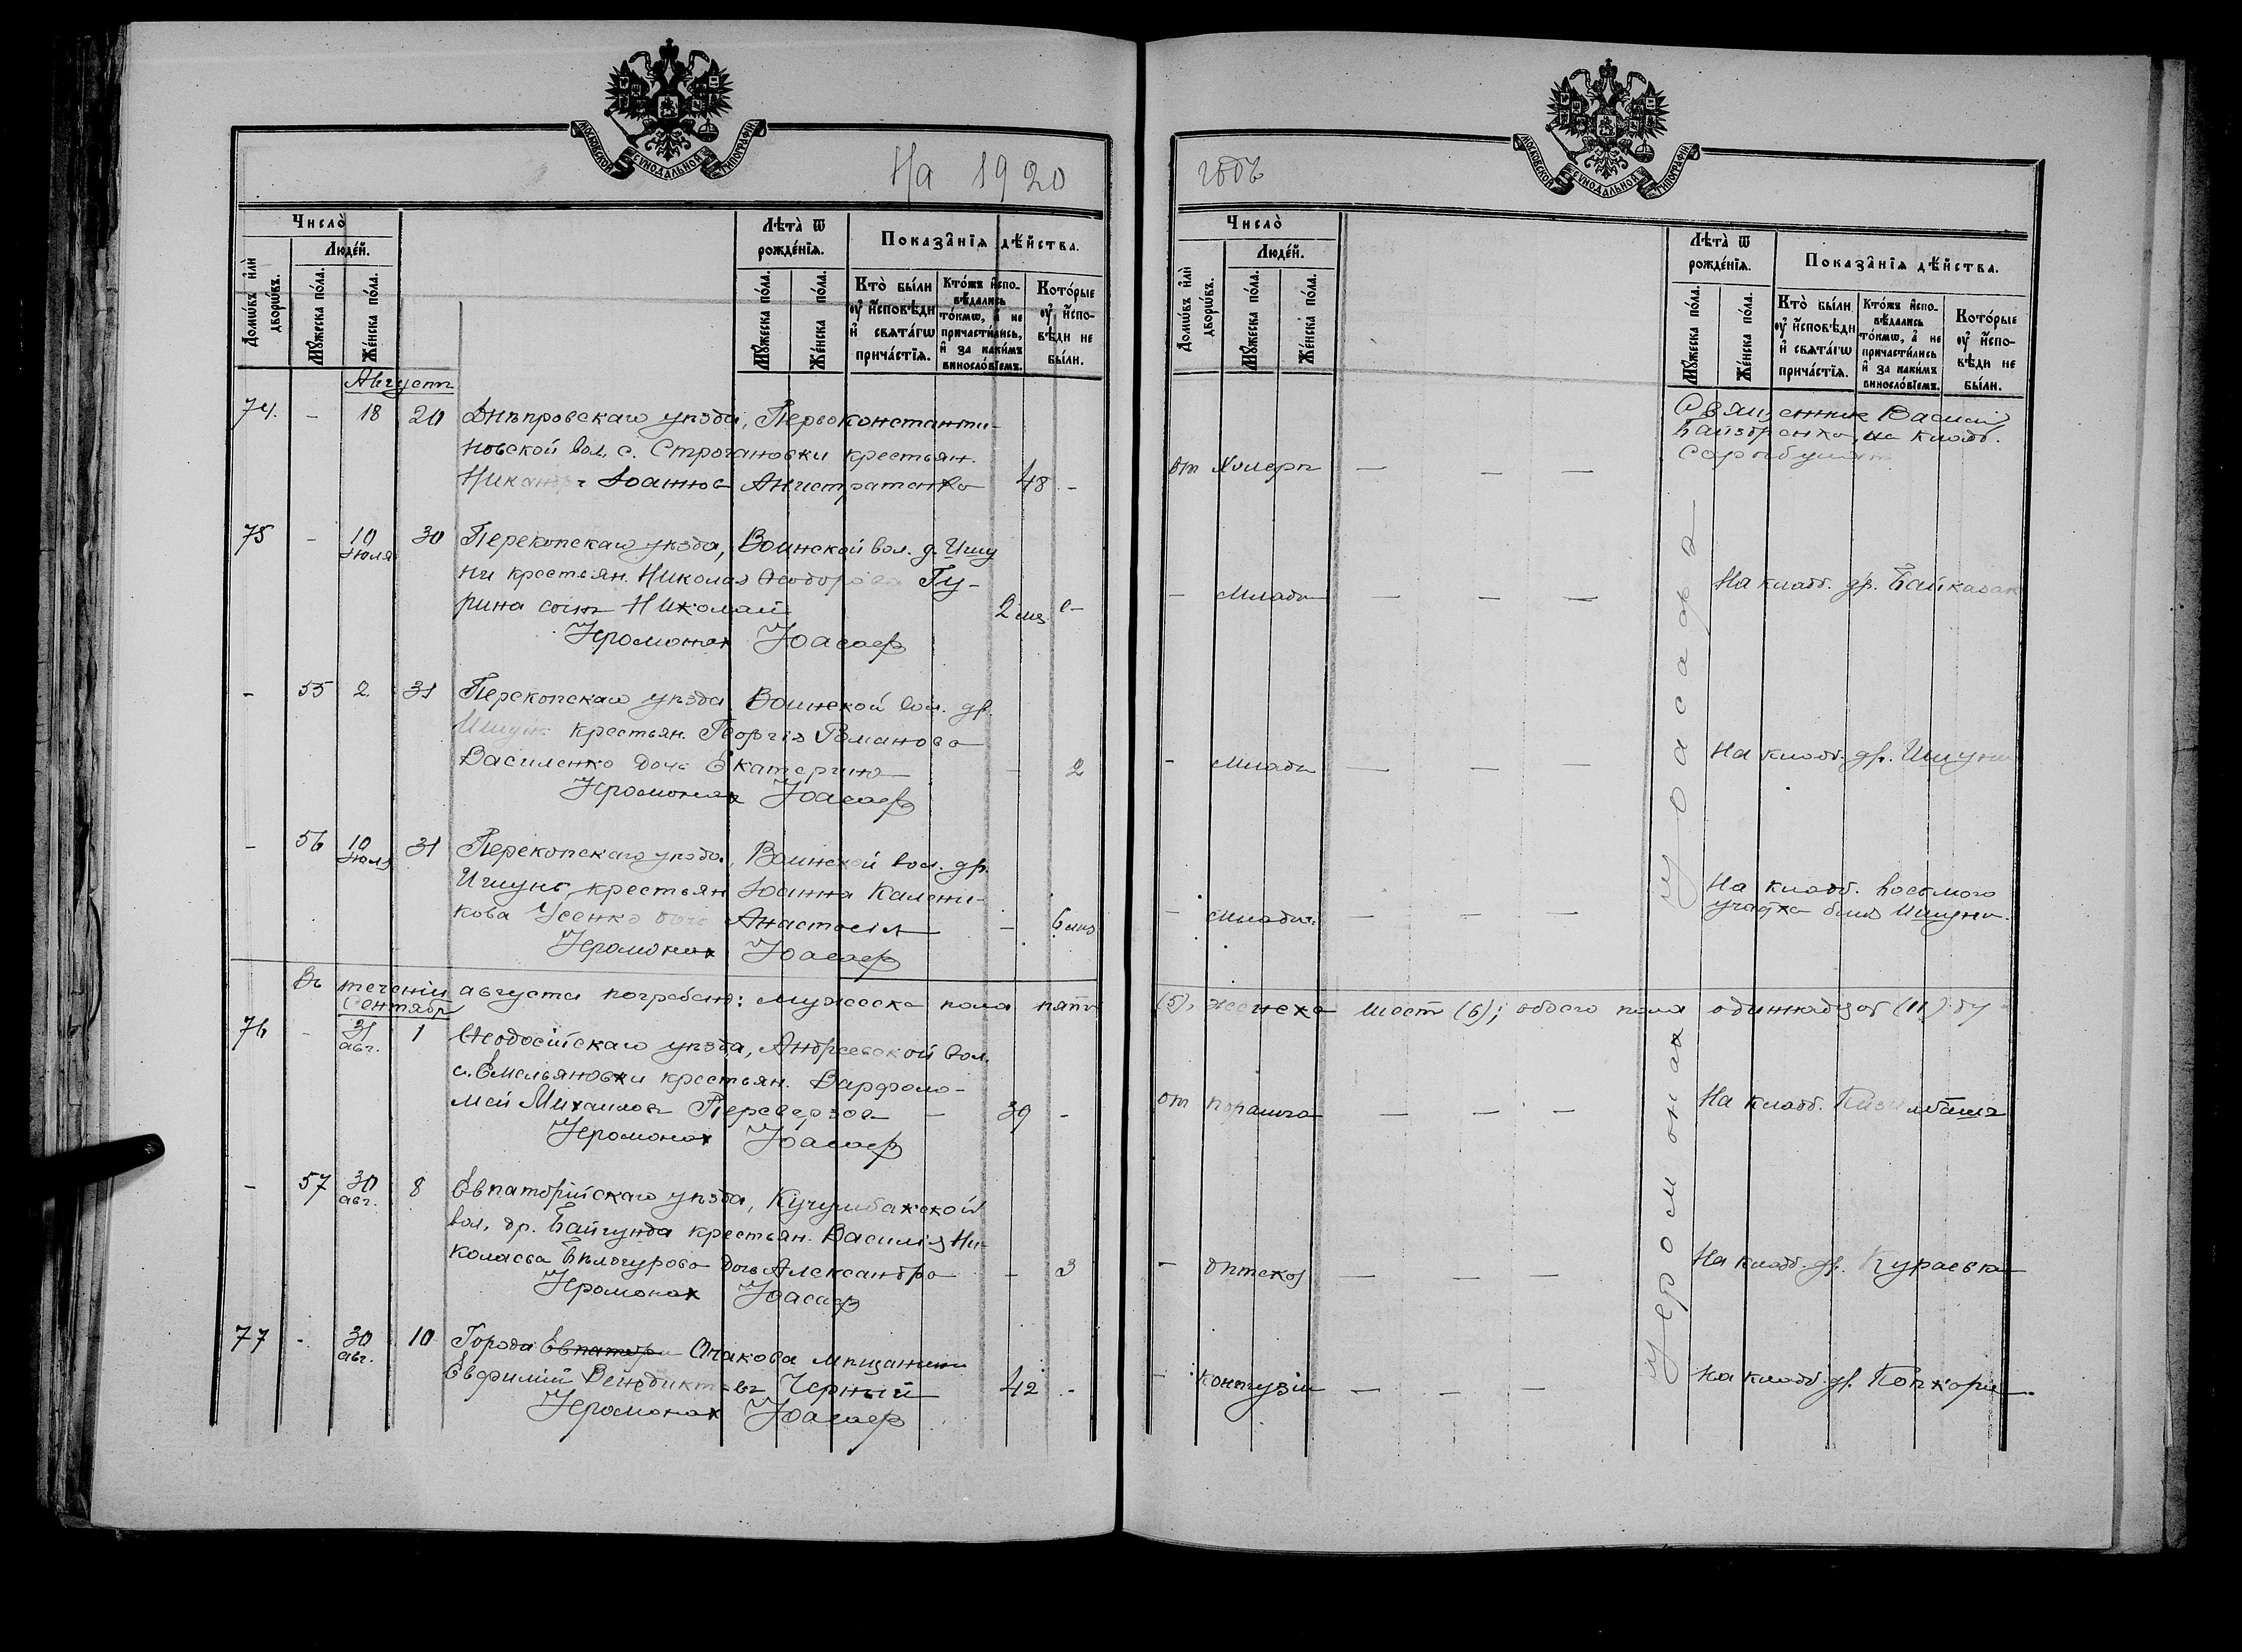 МОСКОВСКОЙ СУНОДАЛЬНОЙ ТИПОГРАФІИ
На 1920
Число̀
Люде́й.
Домѡ́въ и҆лѝ дворѡ́въ.
Мꙋ́жеска по́ла.
Же́нска по́ла.
Лѣ́та ѿ рожде́нїѧ.
Мꙋ́жеска по́ла.
Же́нска по́ла.
Показа̂нїѧ дѣ́йства.
Кто̀ бы́ли ᲂу҆ и҆́сповѣди и҆ свѧта́гѡ прича́стїѧ.
Кто́жъ и҆спо-вѣ́дались то́кмѡ, а҆ не причасти́лись, и҆ за каки́мъ винослóвїемъ.
Кото́рые ᲂу҆ и҆́спо-вѣди не бы́ли.
Августъ
74. - 18 20 Днѣпровскаго уѣзда, Первоконстанти-
новской вол. с. Строгановки крестьян.
Никандръ Іоанновъ Анистратенко 48 -
75 - 10 Іюля 30 Перекопскаго уѣзда, Воинской вол. д. Ишу
ни крестьян. Николая Ѳеодорова Гу-
рина сынъ Николай 2 мѣс. -
Іеромонах Іоасаф
- 55 2 31 Перекопскаго уѣзда Воинской вол. др.
Ишунь крестьян. Георгія Романова
Василенко дочь Екатерина - 2
Іеромонах Іоасаф
- 56 10 Іюля 31 Перекопскаго уѣзда, Воинской вол. др.
Ишунь крестьян Іоанна Калени-
кова Усенко дочь Анастасія - 6 мѣс
Іеромонах Іоасаф
Въ теченіи августа погребено: мужеска пола пять
Сентябрь
76 - 31 авг. 1 Ѳеодосійскаго уѣзда, Андреевской вол.
с. Емельяновки крестьян. Варфоло-
мей Михаилов Переверзов - 39 -
Іеромонах Іоасаф
- 57 30 авг. 8 Евпаторійскаго уѣзда,
вол. др. Байгунда крестьян. Василія Ни-
колаева Бѣлогурова дочь Александра - 3
Іеромонах Іоасаф
77 - 30 авг. 10 Города Евпатори Очакова мѣщанин
Евфимій Венедиктовъ Черный 42 -
Іеромонах Іоасаф
МОСКОВСКОЙ СУНОДАЛЬНОЙ ТИПОГРАФІИ
годъ
Число̀
Люде́й.
Домѡ́въ и҆лѝ дворѡ́въ.
Мꙋ́жеска по́ла.
Же́нска по́ла.
Лѣ́та ѿ рожде́нїѧ.
Мꙋ́жеска по́ла.
Же́нска по́ла.
Показа̂нїѧ дѣ́йства.
Кто̀ бы́ли ᲂу҆ и҆́сповѣди и҆ свѧта́гѡ прича́стїѧ.
Кто́жъ и҆спо-вѣ́дались то́кмѡ, а҆ не причасти́лись и҆ за каки́мъ винослóвїемъ.
Кото́рые ᲂу҆ и҆́спо-вѣди не бы́ли.
Священник Василій
на кладб.
от Холеры — — —
- Младен — — — На кладб. др.
- Младен — — — На кладб. др. Ишунь
- Младен. — — — На кладб. восьмого
участка близ Ишуни.
(5), женска шест (6); обоего пола одиннадцат (11)
от — — — На кладб.
- дѣтской — — — На кладб. др. Кураевка
- контузіи — — — На кладб. др.
Іеромонах Іоасаф